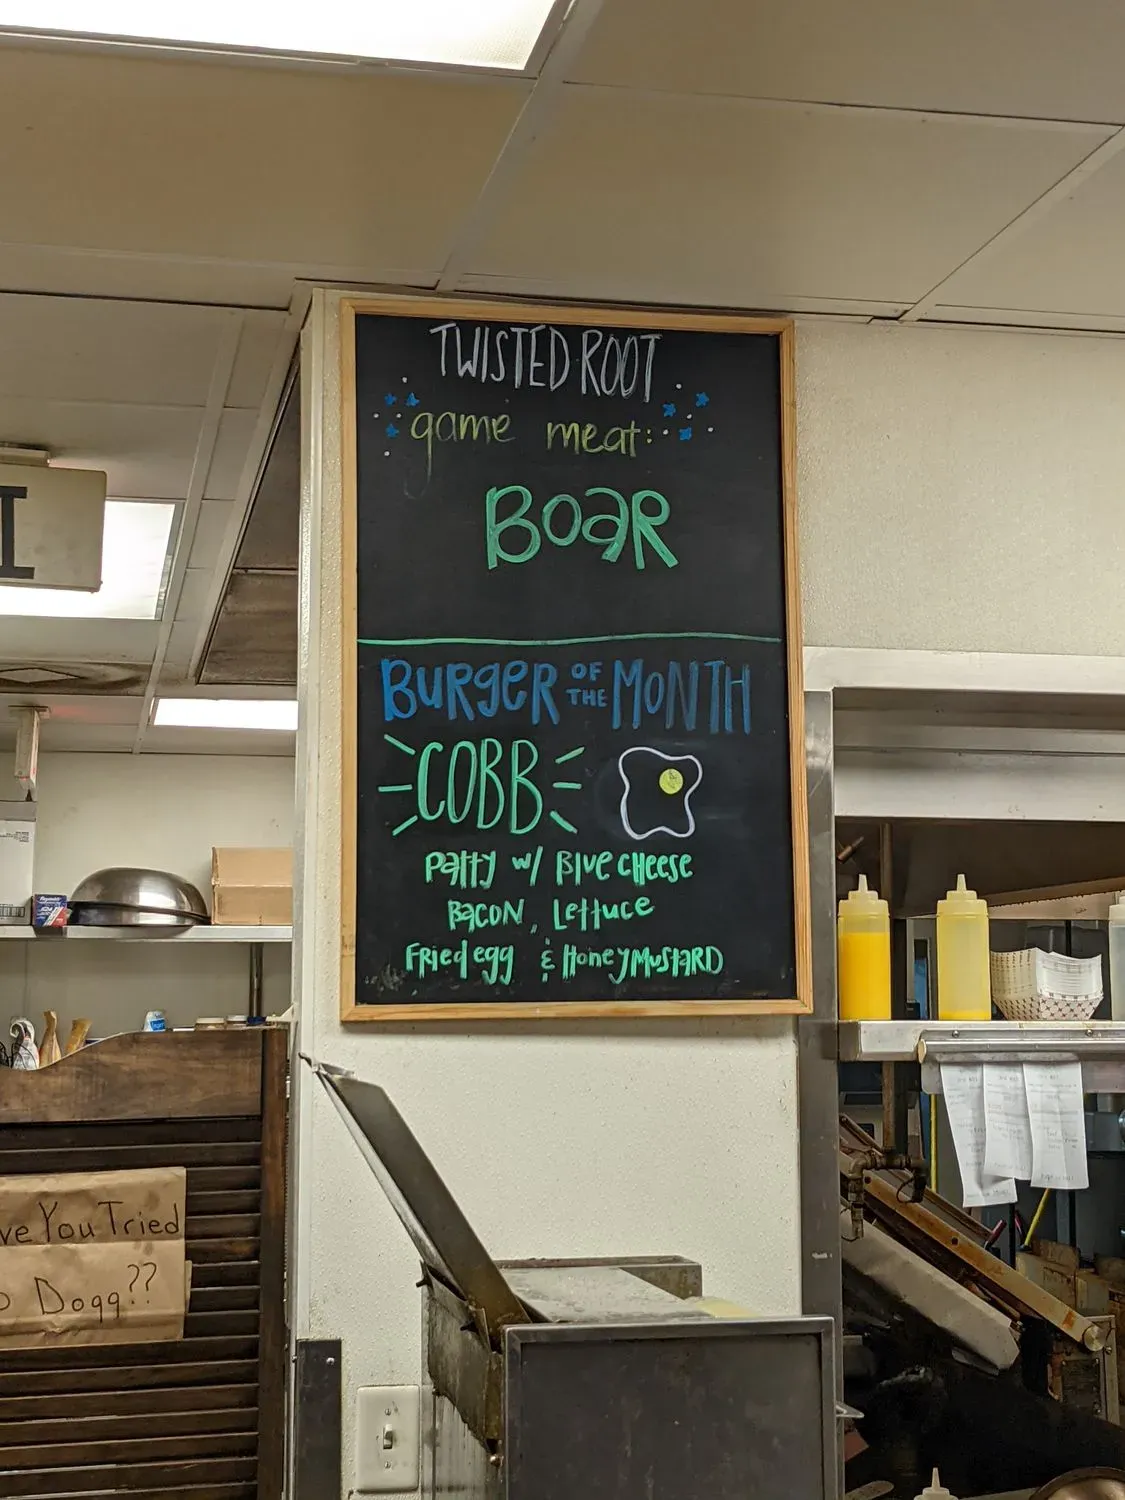 TWISTED ROOT
game meat:
BOaR
BURgER OF THE MONTH
COBB
Patty w/ Blue cHeese
Bacon, Lettuce
Fried egg & Honey MustaRD
I
ve You Tried
Dogg??